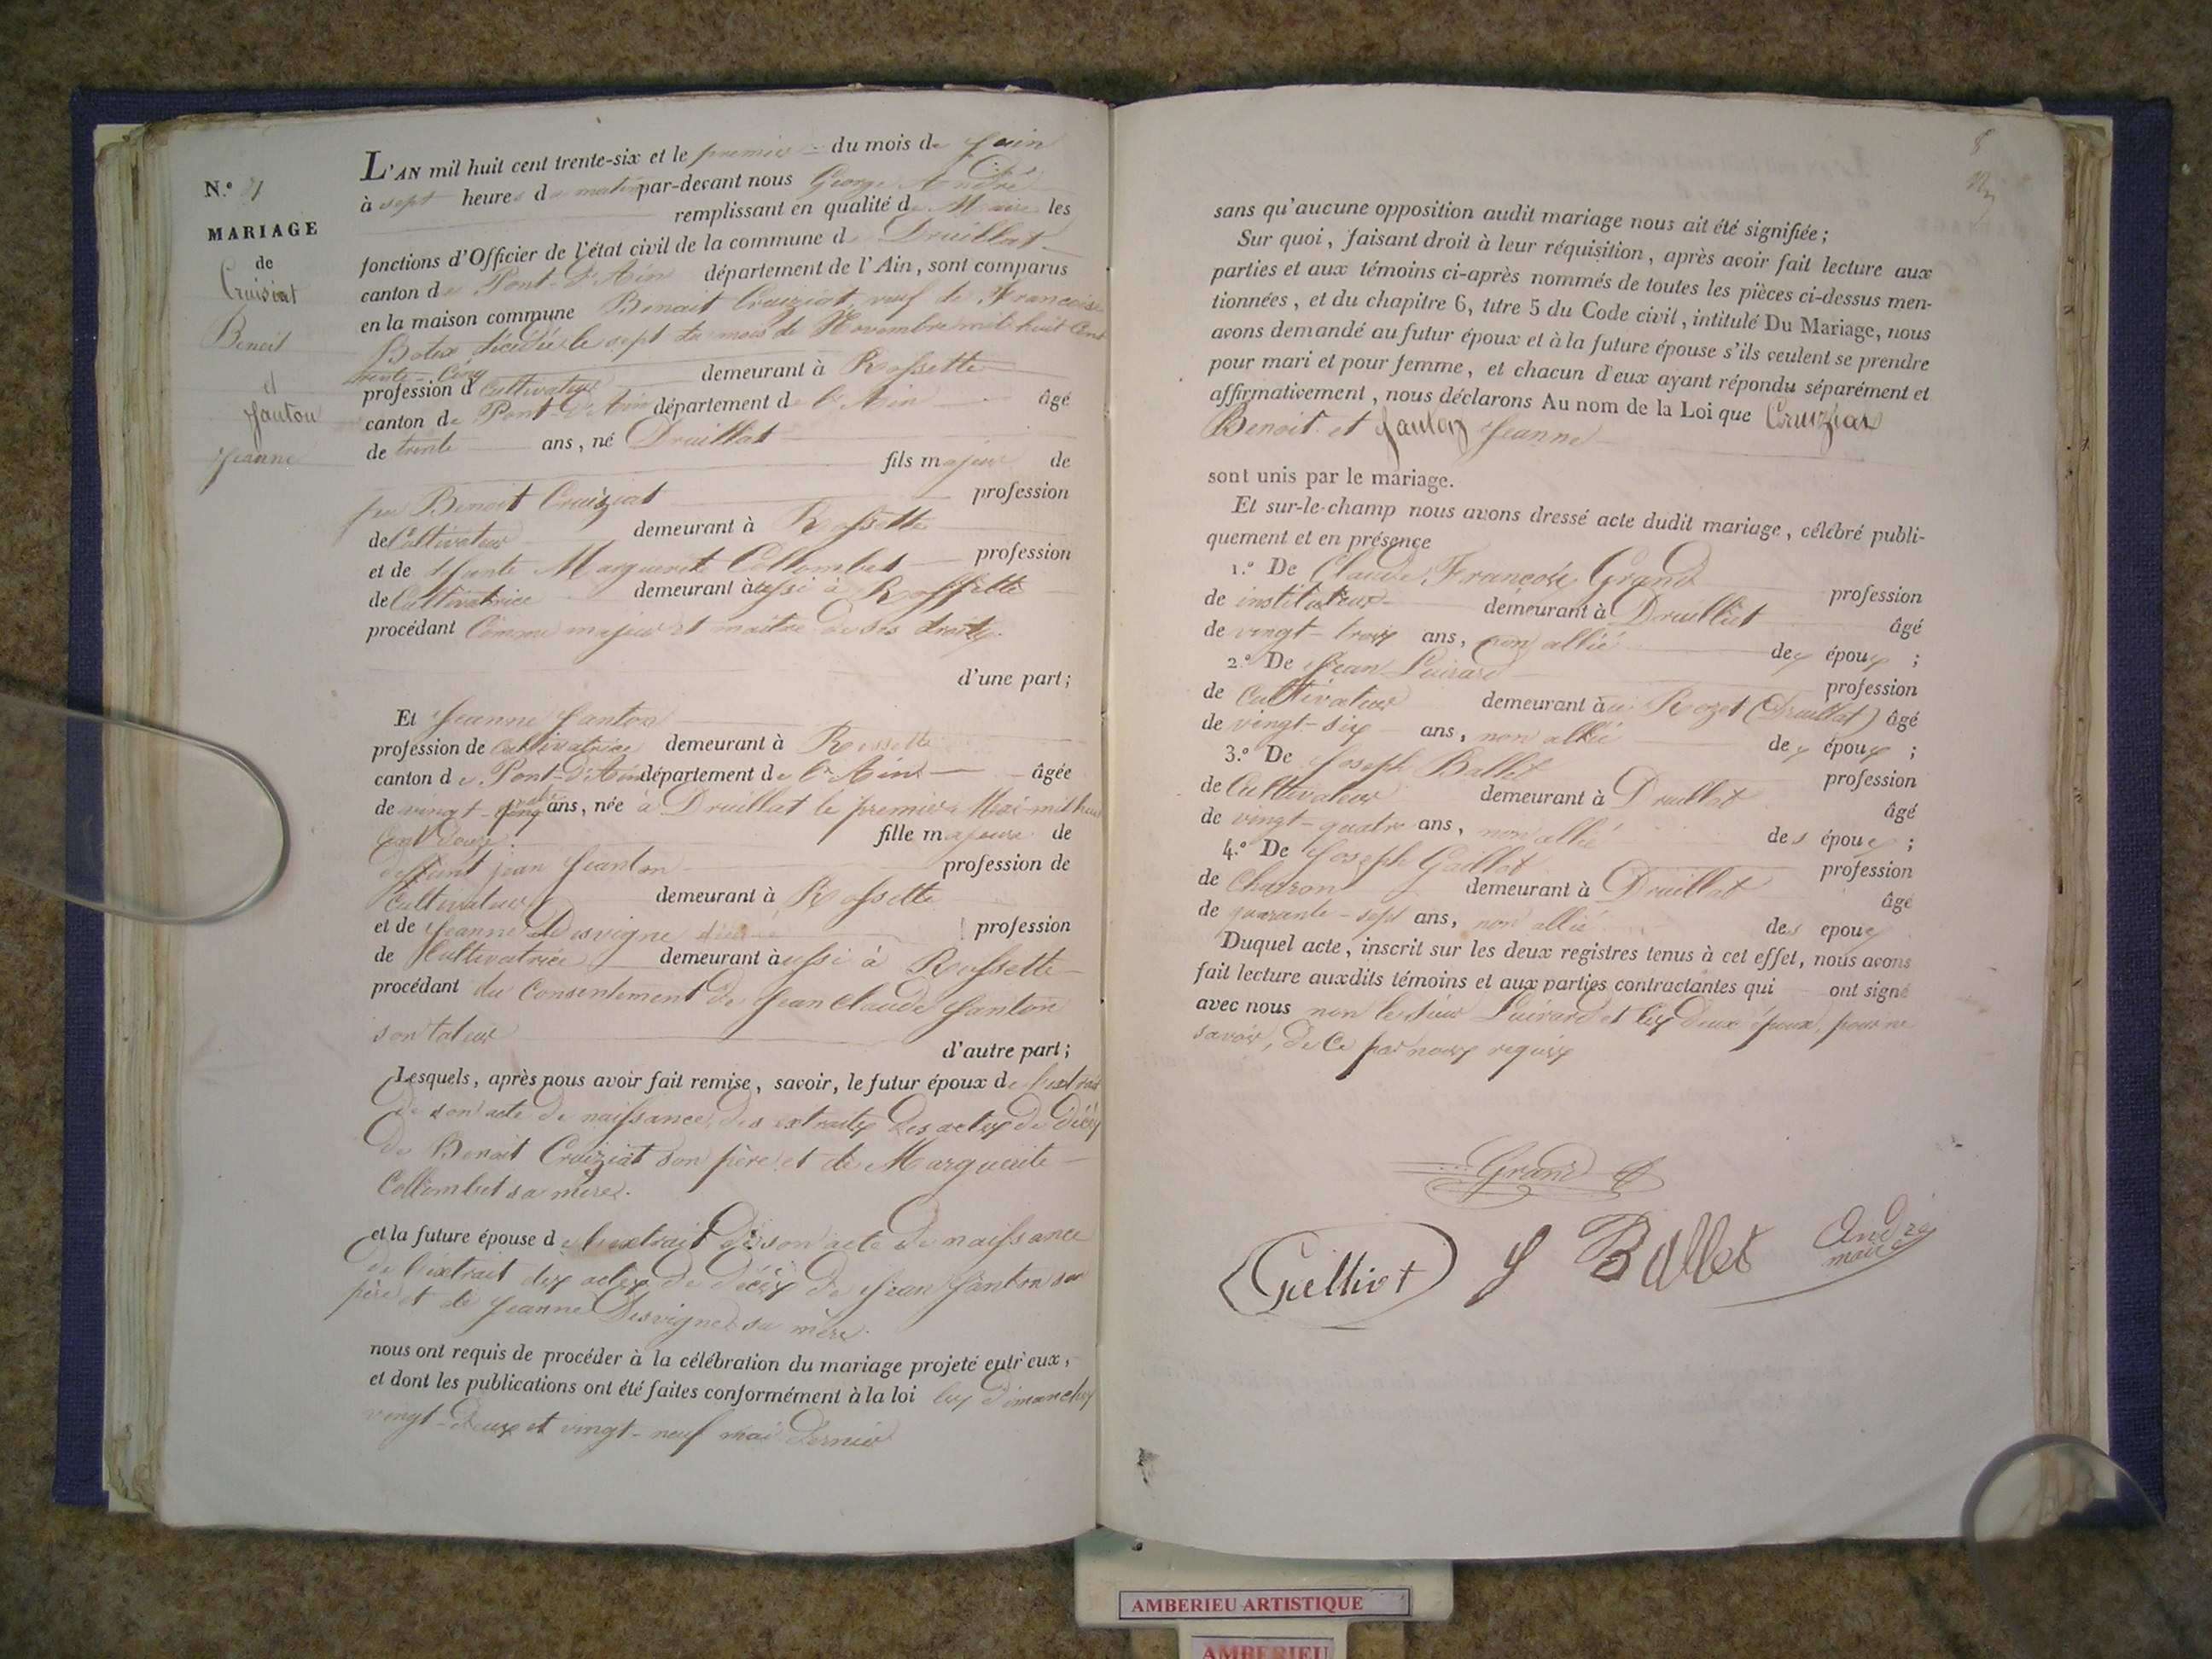 N.°
MARIAGE
de
Cruisiat
Benoit
et
Janton
Jeanne
L'AN mil huit cent trente-six et le premier du mois de Juin
à sept heures du matin par-devant nous George André
remplissant en qualité de Maire les
fonctions d'Officier de l'état civil de la commune de Druillat
canton de Pont-d'Ain département de l'Ain, sont comparus
en la maison commune Benoit Cruiziat, veuf de Francoise
Botex décédée le sept du mois de Novembre mil huit cent
trente-cinq
profession d cultivateur demeurant à Rossette
canton de Pont-d'Ain département de l'Ain âgé
de trente ans, né Druillat
fils majeur de
feu Benoit Cruiziat profession
de Cultivateur demeurant à Rossette
et de défunte Marguerite Collombet profession
de Cultivatrice demeurant aussi à Rossette
procédant Comme majeur et maitre de ses droits.
d'une part;
Et Jeanne Janton
profession de cultivatrice demeurant à Rossette
canton de Pont-d'Ain département de l'Ain âgée
de vingt- ans, née à Druillat le premier Mai mil huit
cent douze. fille majeure de
deffunt jean Jeanton profession de
Cultivateur demeurant à Rossette
et de Jeanne Desvigne profession
de Cultivatrice demeurant aussi à Rossette
procédant du Consentement de Jean Claude Janton
son tuteur
d'autre part;
Lesquels, après nous avoir fait remise, savoir, le futur époux de l'extrait
de son acte de naissance, des extraits des actes de décès
de Benoit Cruiziat son père et de Marguerite
Collombet sa mère.
et la future épouse de l'extrait de son acte de naissance
de l'extrait des actes de décès de Jean Janton son
père et de Jeanne Desvigne sa mère.
nous ont requis de procéder à la célébration du mariage projeté entr'eux,
et dont les publications ont été faites conformément à la loi les dimanches
vingt-deux et vingt-neuf mai dernier
sans qu'aucune opposition audit mariage nous ait été signifiée;
Sur quoi, faisant droit à leur réquisition, après avoir fait lecture aux
parties et aux témoins ci-après nommés de toutes les pièces ci-dessus men-
tionnées, et du chapitre 6, titre 5 du Code civil, intitulé Du Mariage, nous
avons demandé au futur époux et à la future épouse s'ils veulent se prendre
pour mari et pour femme, et chacun d'eux ayant répondu séparément et
affirmativement, nous déclarons Au nom de la Loi que Cruiziat
Benoit et Janton Jeanne
sont unis par le mariage.
Et sur-le-champ nous avons dressé acte dudit mariage, célébré publi-
quement et en présence
1.° De Claude François Grand profession
de instituteur demeurant à Druillat âgé
de vingt-trois ans, non allié des époux ;
2.° De Jean Luirard profession
de Cultivateur demeurant au Rozet (Druillat) âgé
de vingt-six ans, non allié des époux ;
3.° De Joseph Ballet profession
de Cultivateur demeurant à Druillat âgé
de vingt-quatre ans, non allié des époux ;
4.° De Joseph Gaillot profession
de Charron demeurant à Druillat âgé
de quarante-sept ans, non allié des époux
Duquel acte, inscrit sur les deux registres tenus à cet effet, nous avons
fait lecture auxdits témoins et aux parties contractantes qui ont signé
avec nous non le sieur Luirard et les deux époux, pour ne
savoir, de ce par nous requis
Grand
Gailliot J Ballet André
maire
AMBERIEU ARTISTIQUE
AMBERIEU